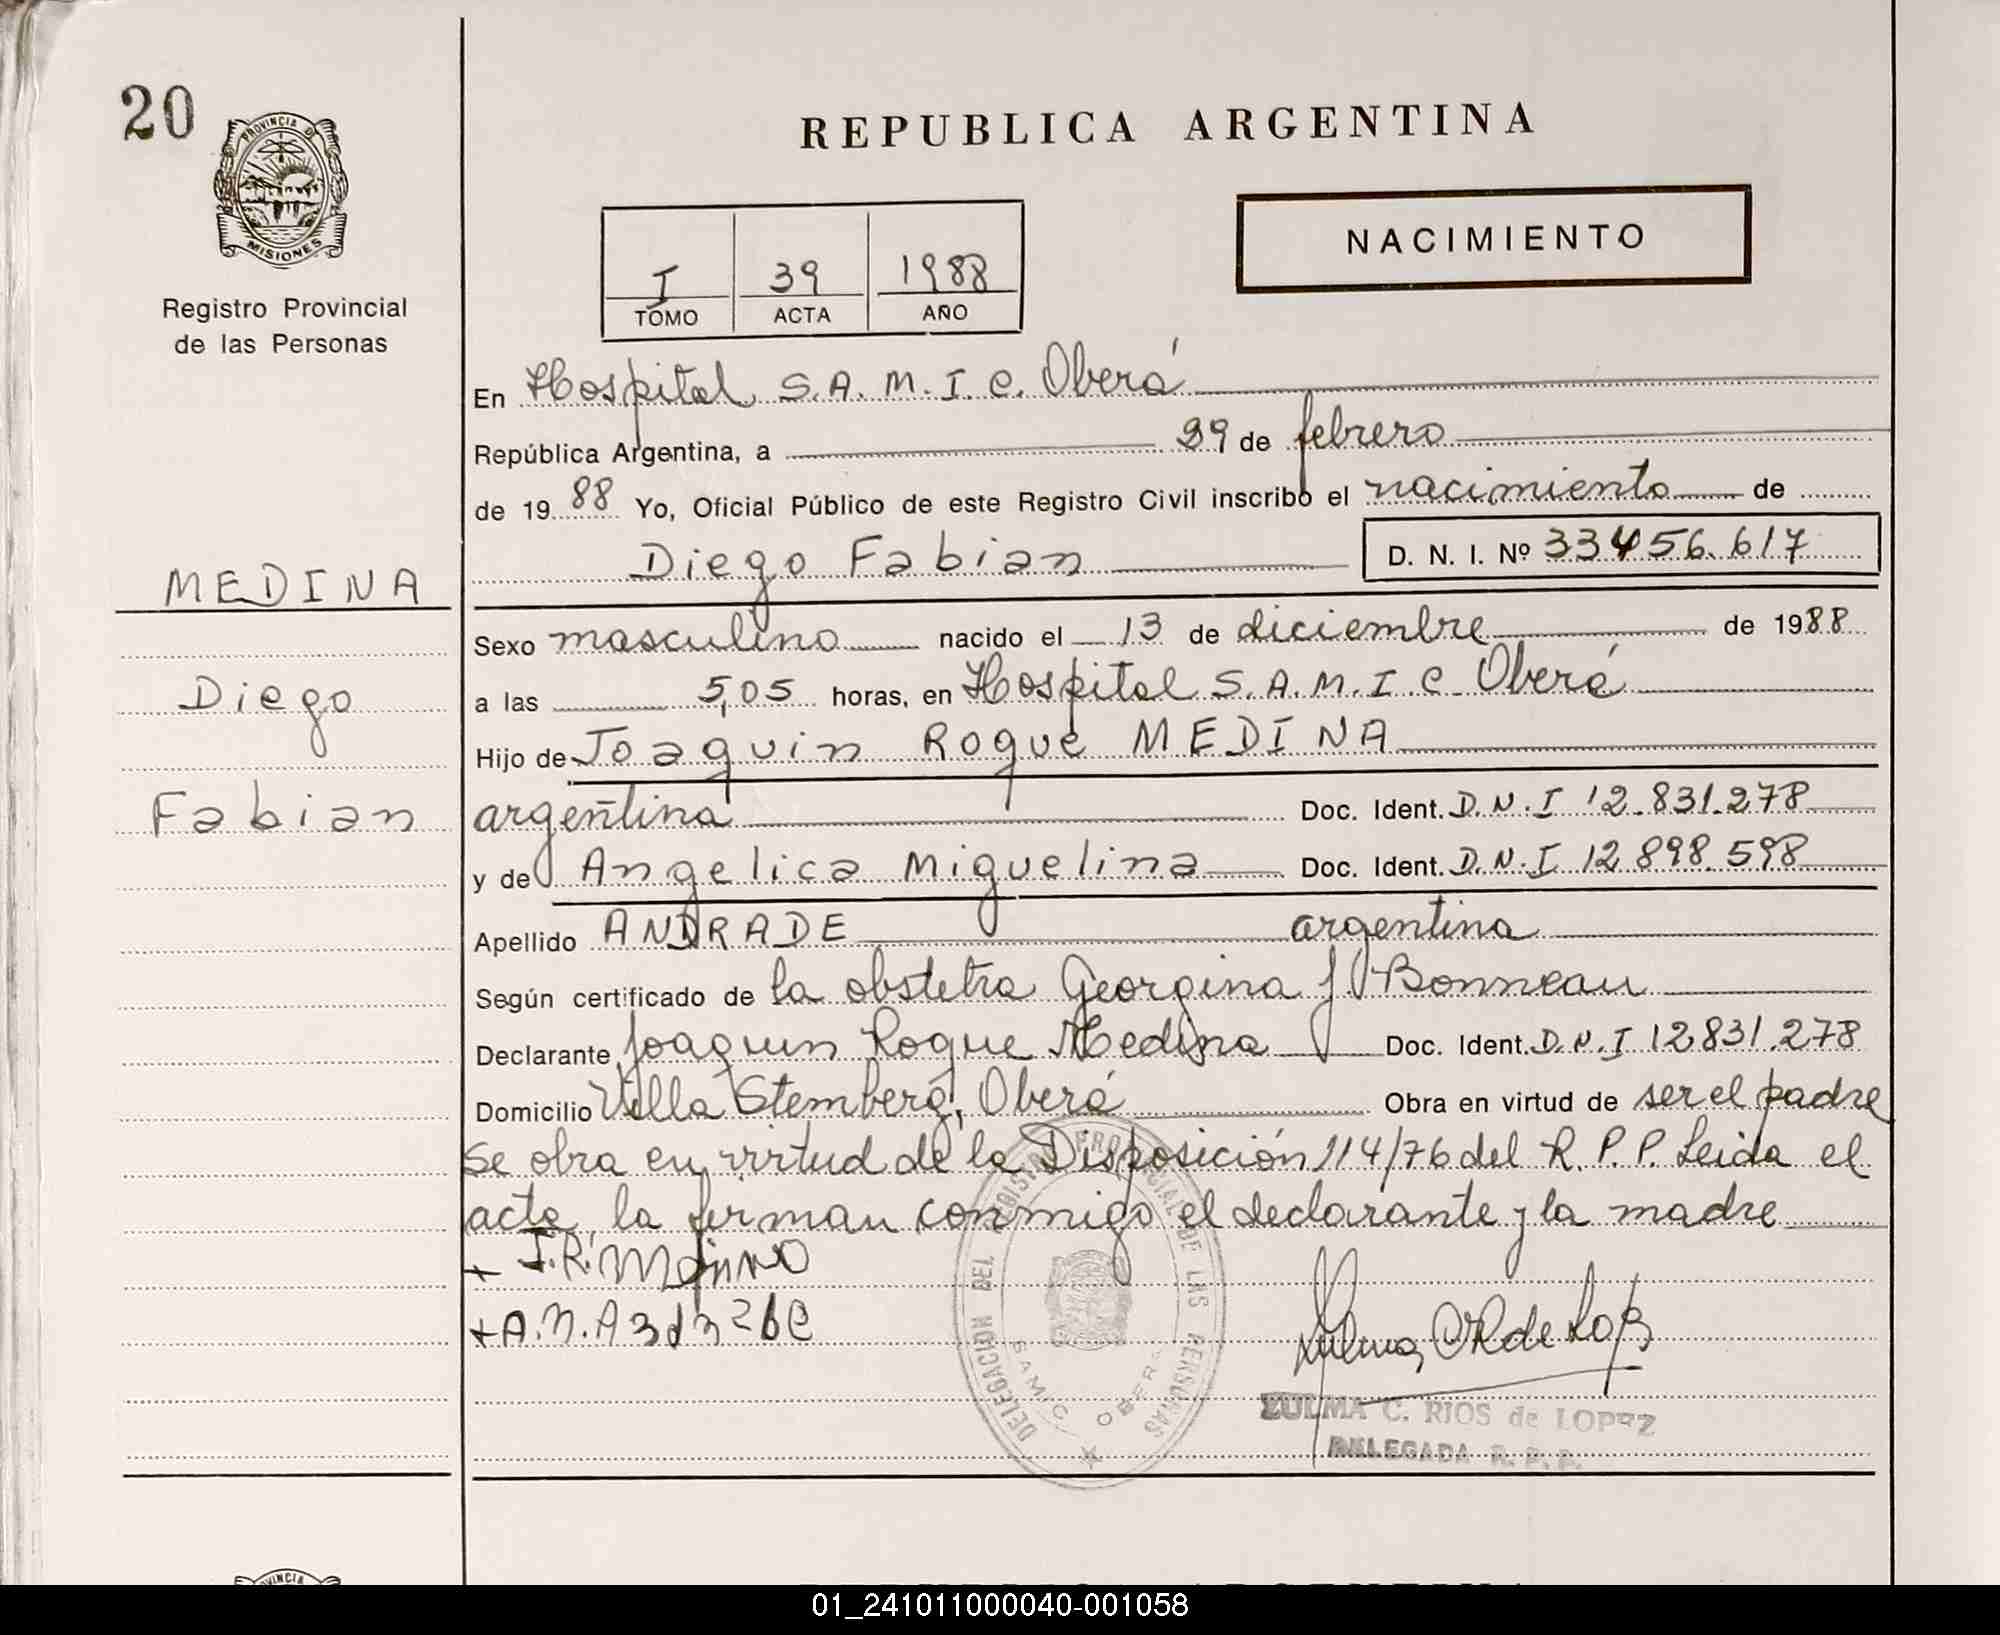 20
PROVINCIA DE
MISIONES
Registro Provincial
de las Personas
REPUBLICA ARGENTINA
NACIMIENTO
I 39 1988
TOMO ACTA AÑO
En Hospital S.A.M.I.C. Oberá
República Argentina, a 29 de febrero
de 1988 Yo, Oficial Público de este Registro Civil inscribo el nacimiento de
Diego Fabian D. N. I. Nº 33456.617
MEDINA
Diego
Fabian
Sexo masculino nacido el 13 de diciembre de 1988
a las 5,05 horas, en Hospital S.A.M.I.C Oberá
Hijo de Joaquin Roque MEDINA
argentina Doc. Ident. D.N.I 12.831.278
y de Angelica Miguelina Doc. Ident. D.N.I 12.898.598
Apellido ANDRADE argentina
Según certificado de la obstetra Georgina J Bonneau
Declarante Joaquin Roque Medina Doc. Ident. D.N.I 12831.278
Domicilio Villa Stemberg, Oberá Obra en virtud de ser el padre
se obra en virtud de la Disposición 114/76 del R.P.P. Leida el
acta la firman conmigo el declarante y la madre
+ J.R.
+ A.M.
DELEGACION DEL REGISTRO PROVINCIAL DE LAS PERSONAS
SAMIC OBERA
ZULMA C. RIOS de LOPEZ
DELEGADA R. P. P.
PROVINCIA
01_241011000040-001058